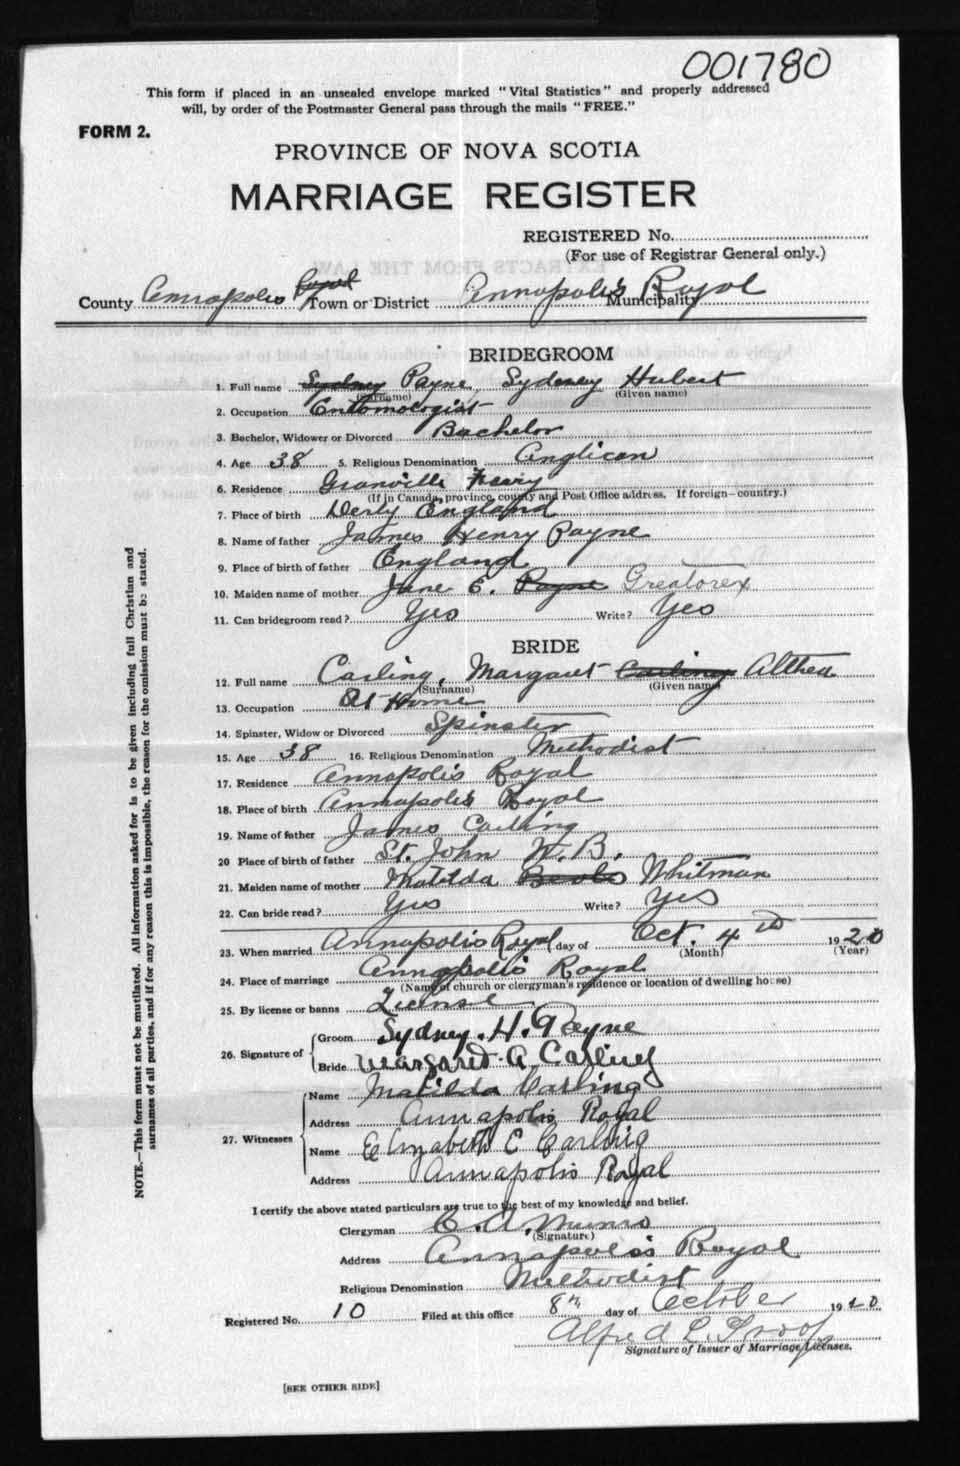 001780
This form if placed in an unsealed envelope marked "Vital Statistics" and properly addressed
will, by order of the Postmaster General pass through the mails "FREE."
FORM 2.
PROVINCE OF NOVA SCOTIA
MARRIAGE REGISTER
REGISTERED No.
(For use of Registrar General only.)
County Annapolis Royal Town or District Annapolis Royal Municipality
BRIDEGROOM
1. Full name Sydney Payne Sydney Hubert
(Surname) (Given name)
2. Occupation Entomologist
3. Bachelor, Widower or Divorced Bachelor
4. Age 38 5. Religious Denomination Anglican
6. Residence Granville Ferry
(If in Canada, province, county and Post Office address. If foreign—country.)
7. Place of birth Derby England
8. Name of father James Henry Payne
9. Place of birth of father England
10. Maiden name of mother Jane E. Payne Greatorex
11. Can bridegroom read? Yes Write? Yes
BRIDE
12. Full name Carling, Margaret Carling Althea
(Surname) (Given name)
13. Occupation At Home
14. Spinster, Widow or Divorced Spinster
15. Age 38 16. Religious Denomination Methodist
17. Residence Annapolis Royal
18. Place of birth Annapolis Royal
19. Name of father James Carling
20 Place of birth of father St. John N.B.
21. Maiden name of mother Matilda Whitman
22. Can bride read? Yes Write? Yes
23. When married Annapolis Royal day of Oct. 4th 1920
(Month) (Year)
24. Place of marriage Annapolis Royal
(Name of church or clergyman's residence or location of dwelling house)
25. By license or banns License
26. Signature of Groom Sydney. H. Payne
Bride Margaret A Carling
27. Witnesses Name Matilda Carling
Address Annapolis Royal
Name Elizabeth E Carling
Address Annapolis Royal
I certify the above stated particulars are true to the best of my knowledge and belief.
Clergyman C. A. Munro
(Signature)
Address Annapolis Royal
Religious Denomination Methodist
Registered No. 10 Filed at this office 8th day of October 1920
Alfred L.
Signature of Issuer of Marriage Licenses.
[SEE OTHER SIDE]
NOTE.—This form must not be mutilated. All information asked for is to be given including full Christian and
surnames of all parties, and if for any reason this is impossible, the reason for the omission must be stated.